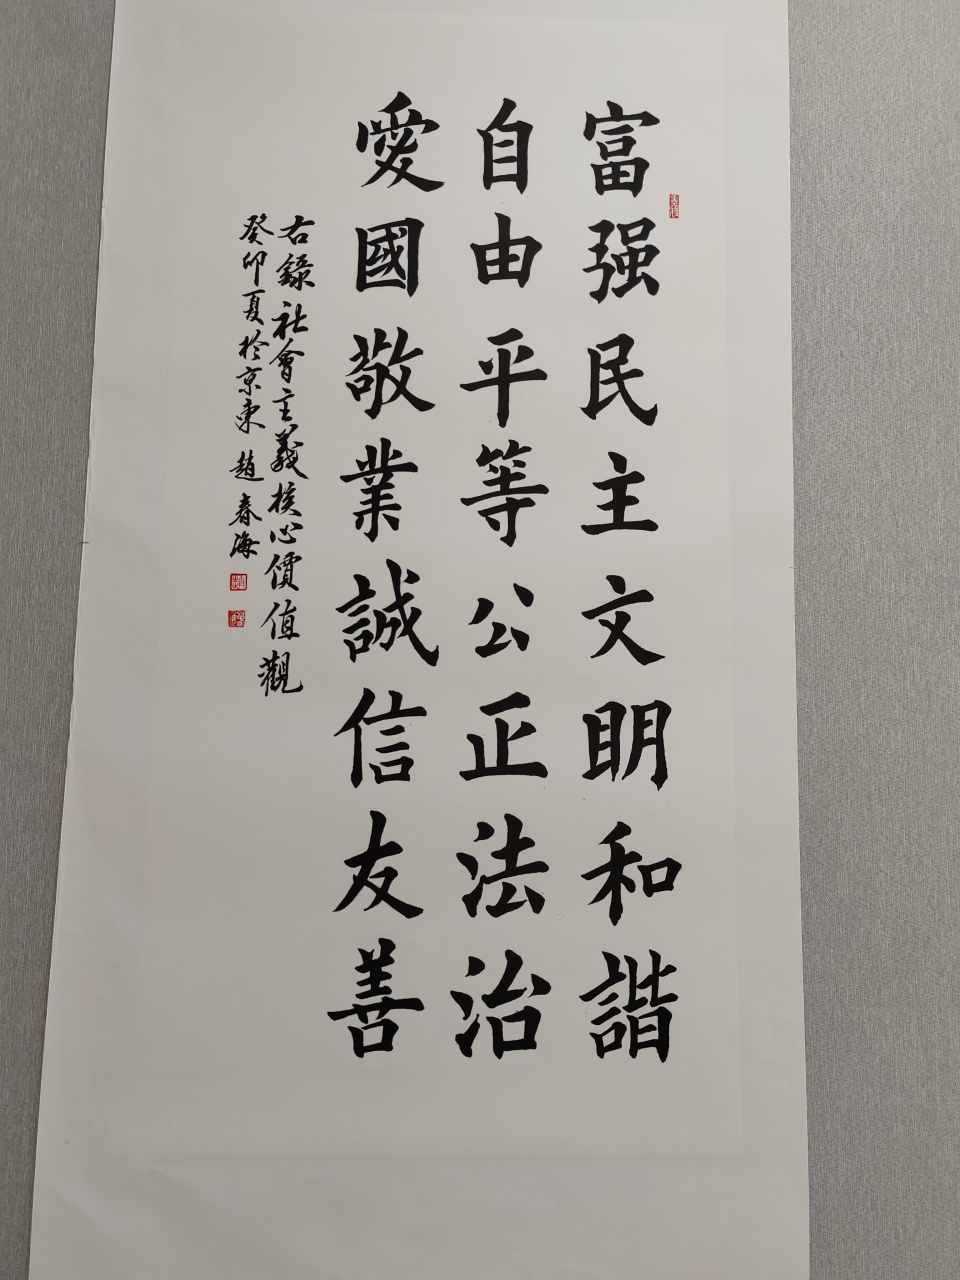 富强民主文明和諧
自由平等公正法治
愛國敬業誠信友善
右錄社會主義核心價值觀
癸卯夏於京東趙春海